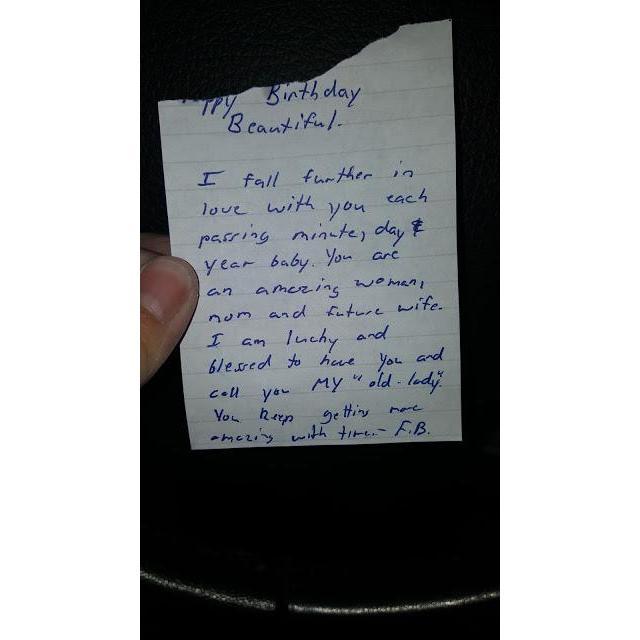 ppy Birthday
Beautiful.
I fall further in
love with you each
passing minute, day &
year baby. You are
an amazing woman,
mom and future wife.
I am lucky and
blessed to have you and
call you MY "old-lady".
You keep getting more
amazing with time.- F.B.